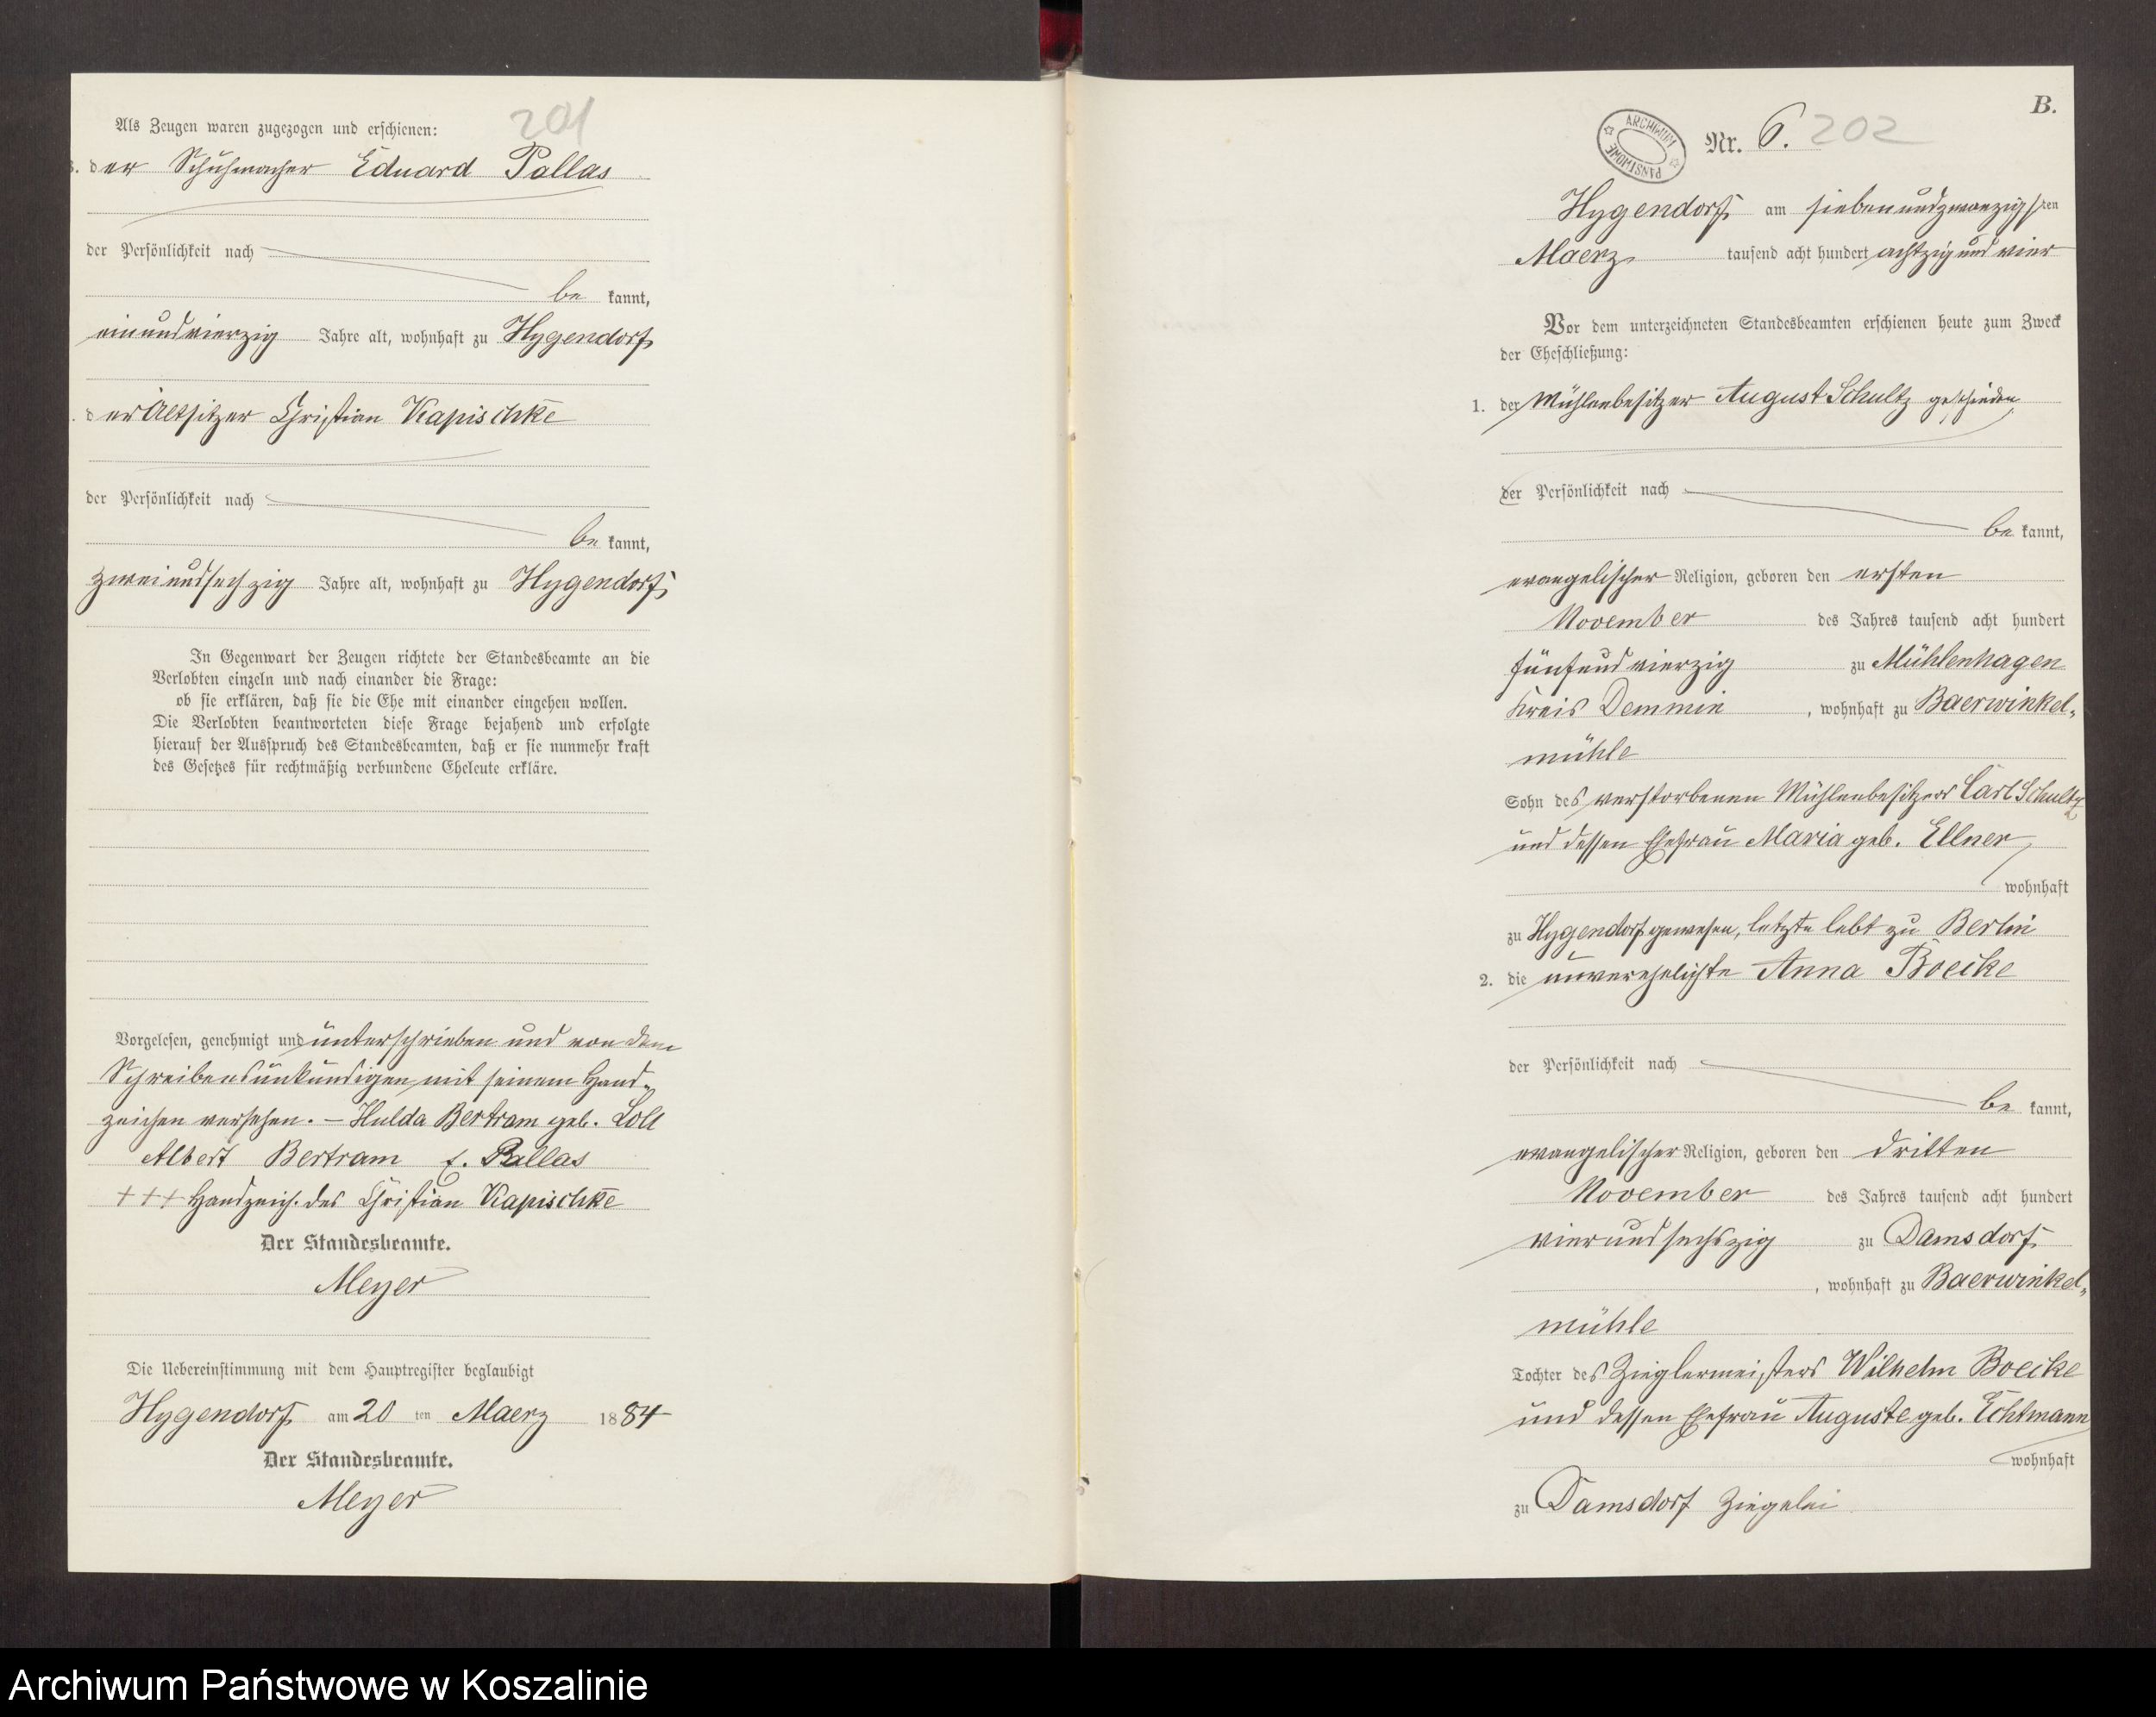 201
Als Zeugen waren zugezogen und erschienen:
3. der Schuhmacher Eduard Pallas
der Persönlichkeit nach
be kannt,
einundvierzig Jahre alt, wohnhaft zu Hygendorf
der Altsitzer Christian Kapischke
der Persönlichkeit nach
be kannt,
zweiundsechzig Jahre alt, wohnhaft zu Hygendorf
In Gegenwart der Zeugen richtete der Standesbeamte an die
Verlobten einzeln und nach einander die Frage:
ob sie erklären, daß sie die Ehe mit einander eingehen wollen.
Die Verlobten beantworteten diese Frage bejahend und erfolgte
hierauf der Ausspruch des Standesbeamten, daß er sie nunmehr kraft
des Gesetzes für rechtmäßig verbundene Eheleute erkläre.
Vorgelesen, genehmigt und unterschrieben und von dem
Schreibensunkundigen mit seinem Hand-
zeichen versehen. – Hulda Bertram geb. Loll
Albert Bertram E. Pallas
+++ Handzeich. des Christian Kapischke
Der Standesbeamte.
Meyer
Die Uebereinstimmung mit dem Hauptregister beglaubigt
Hygendorf am 20 ten Maerz 1884
Der Standesbeamte.
Meyer
B.
ARCHIWUM PAŃSTWOWE
Nr. 6. 202
Hygendorf am siebenundzwanzigsten
Maerz tausend acht hundert achtzig und vier
Vor dem unterzeichneten Standesbeamten erschienen heute zum Zweck
der Eheschließung:
1. der Mühlenbesitzer August Schultz geschieden
der Persönlichkeit nach
be kannt,
evangelischer Religion, geboren den ersten
November des Jahres tausend acht hundert
fünfundvierzig zu Mühlenhagen
Kreis Demmin, wohnhaft zu Baerwinkel-
mühle
Sohn des verstorbenen Mühlenbesitzers Carl Schultz
und dessen Ehefrau Maria geb. Ellner
wohnhaft
zu Hygendorf gewesen, letzte lebt zu Berlin
2. die unverehelichte Anna Boecke
der Persönlichkeit nach
be kannt,
evangelischer Religion, geboren den dritten
November des Jahres tausend acht hundert
vierundsechszig zu Damsdorf
, wohnhaft zu Baerwinkel-
mühle
Tochter des Zieglermeisters Wilhelm Boecke
und dessen Ehefrau Auguste geb. Echtmann
wohnhaft
zu Damsdorf Ziegelei
Archiwum Państwowe w Koszalinie